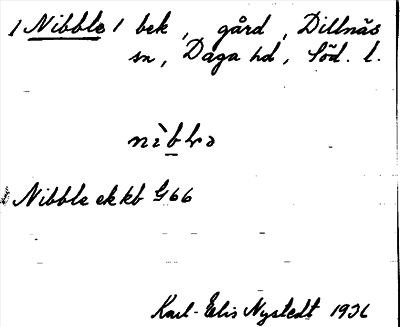 / Nibble / bek, gård, Dillnäs
sn, Daga hd, Söd. l.
Nibble ekkb G66
Karl-Edis Nystedt 1936